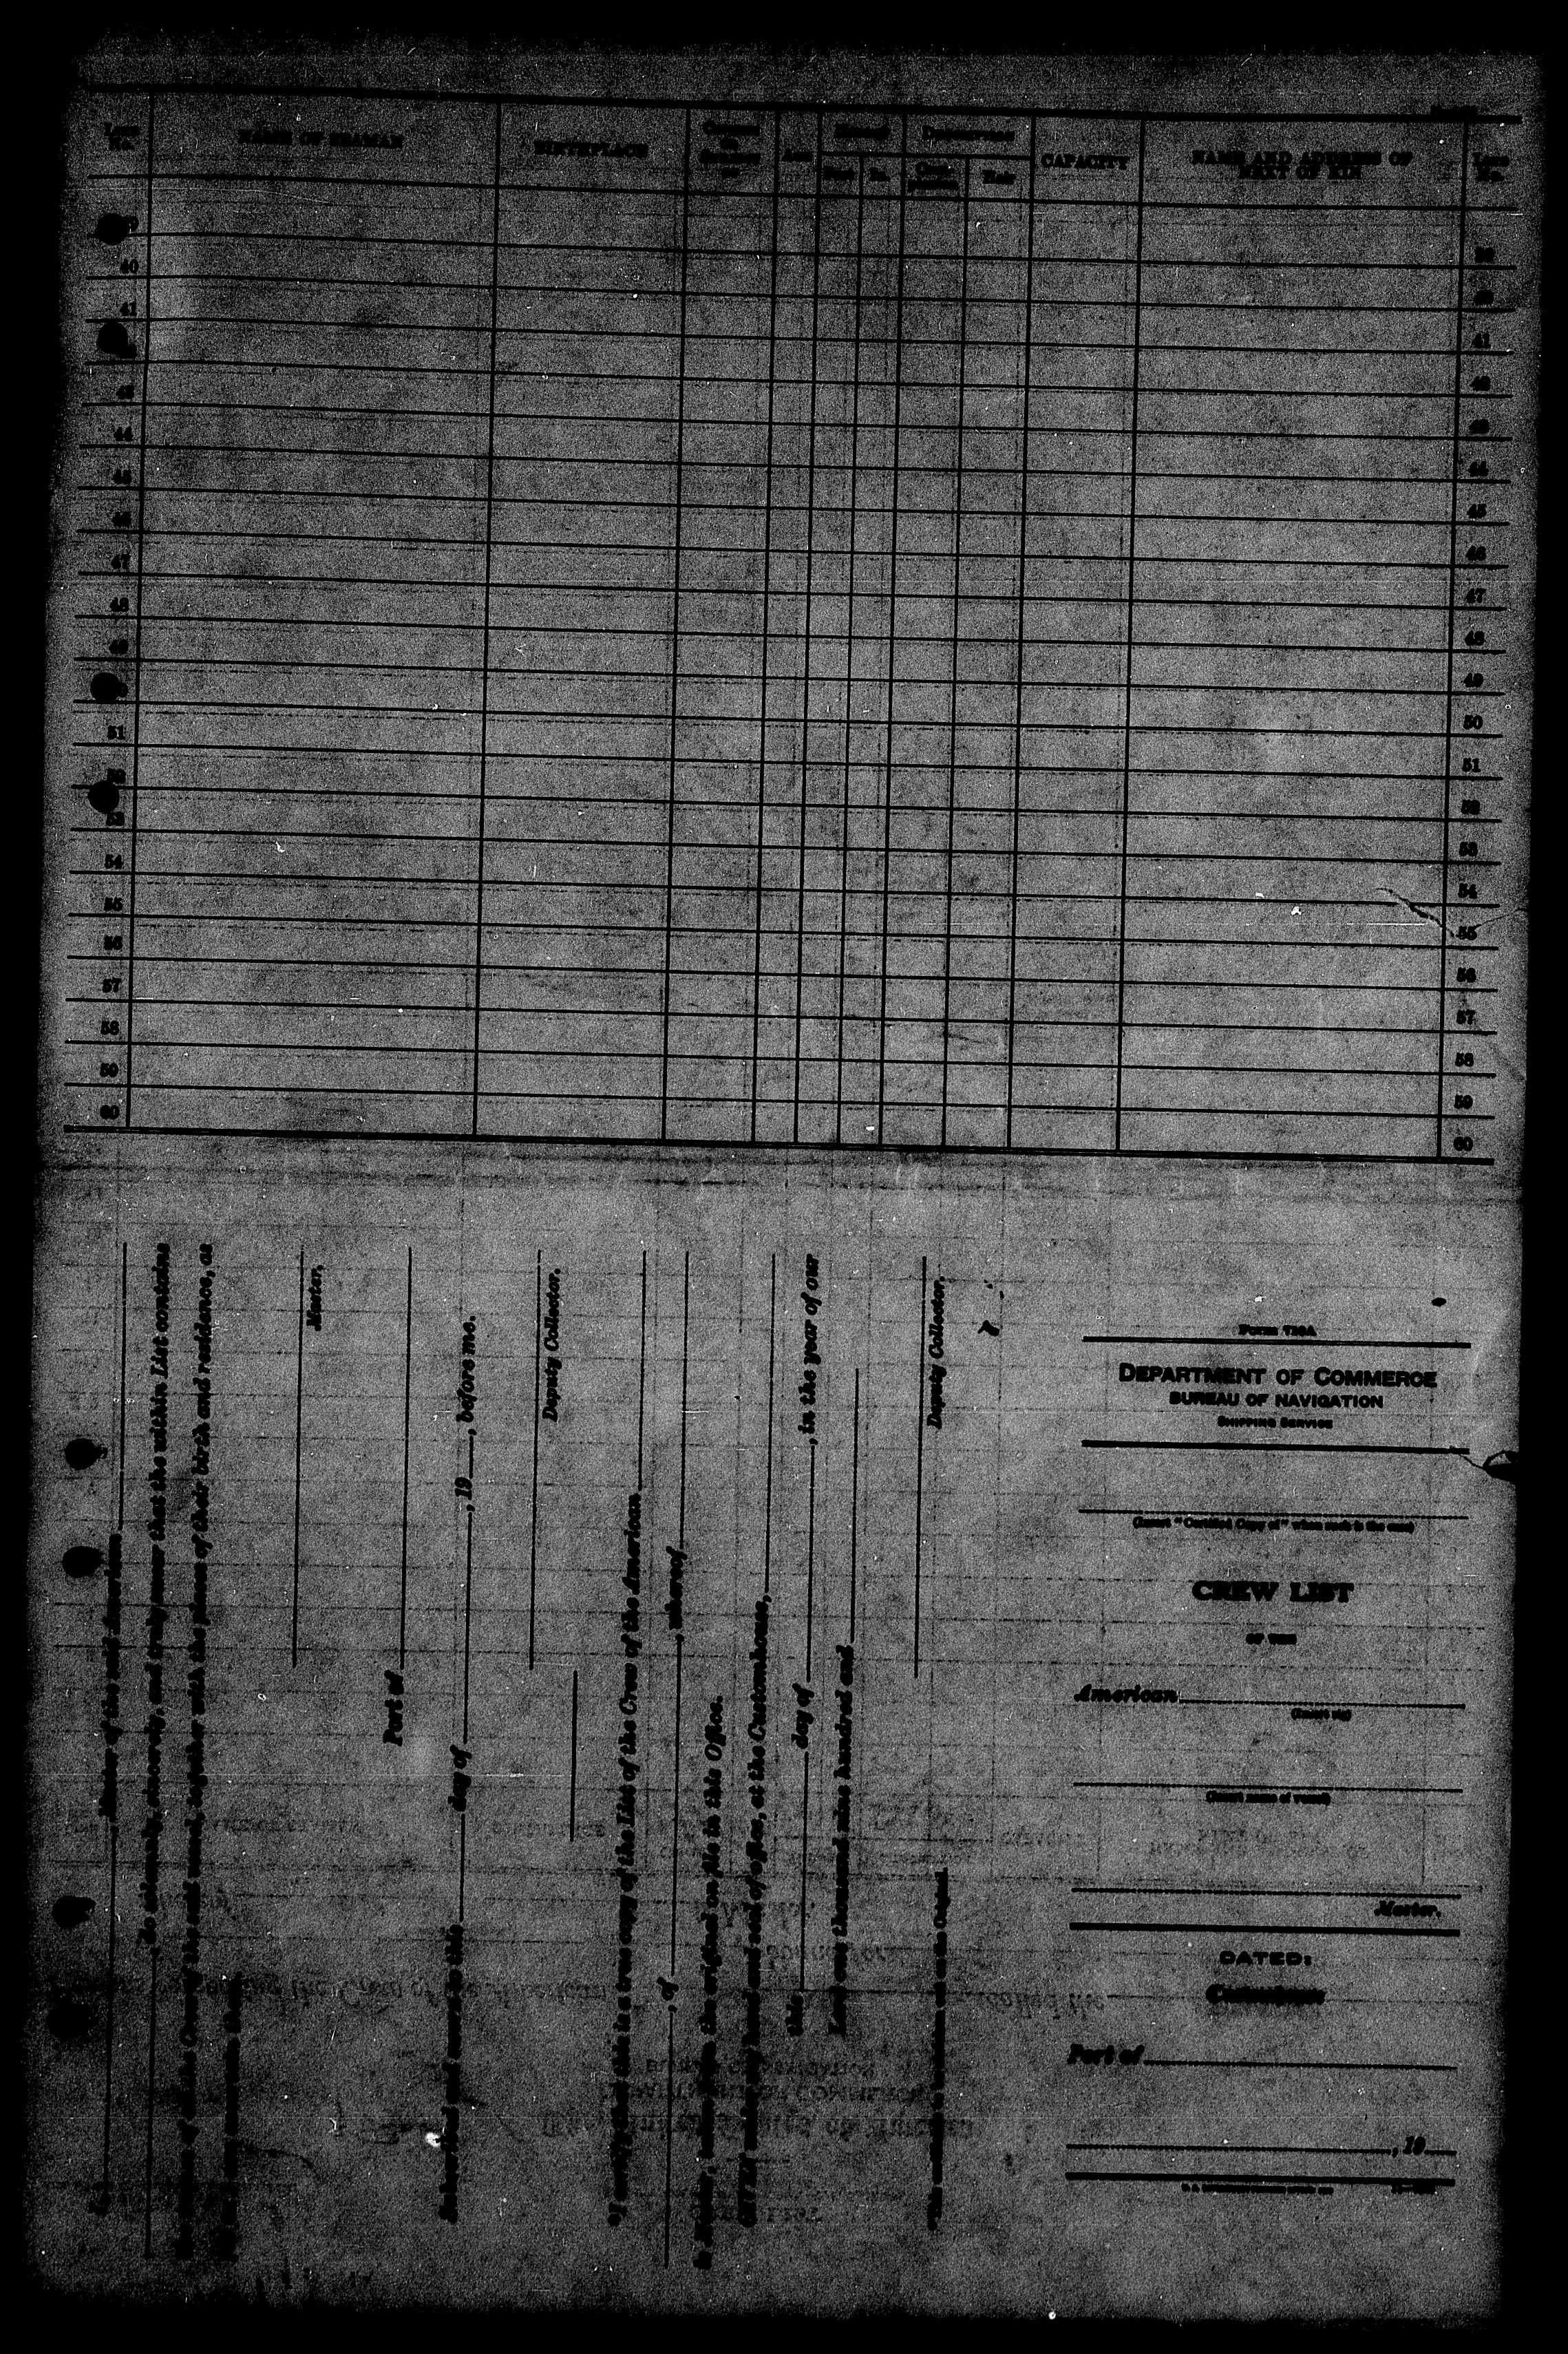 Line No.
NAME OF SEAMAN
BIRTHPLACE
AGE
Height
Feet In.
Hair
CAPACITY
NAME AND ADDRESS OF NEXT OF KIN
Line No.
40
41 41
43
44 44
45 45
46 46
47 47
48 48
49 49
50
51 51
52 52
53 53
54 54
55 55
56 56
57 57
58 58
59 59
60 60
, Master of the said American
do solemnly, sincerely, and truly swear that the within List contains
the names of all the Crew of the said vessel, together with the places of their birth and residence, as
Master.
Port of
Subscribed and sworn to this day of , 19 , before me.
Deputy Collector.
I certify that this is a true copy of the List of the Crew of the American
, of , whereof
is Master, taken from the original on file in this Office.
GIVEN under my hand and seal of office, at the Customhouse,
this day of , in the year of our
Lord one thousand nine hundred and
Deputy Collector.
Form 710A
DEPARTMENT OF COMMERCE
BUREAU OF NAVIGATION
SHIPPING SERVICE
(Insert "Certified Copy of" when such is the case)
CREW LIST
OF THE
American
(Insert rig)
(Insert name of vessel)
Master.
DATED:
Customhouse
Port of
, 19